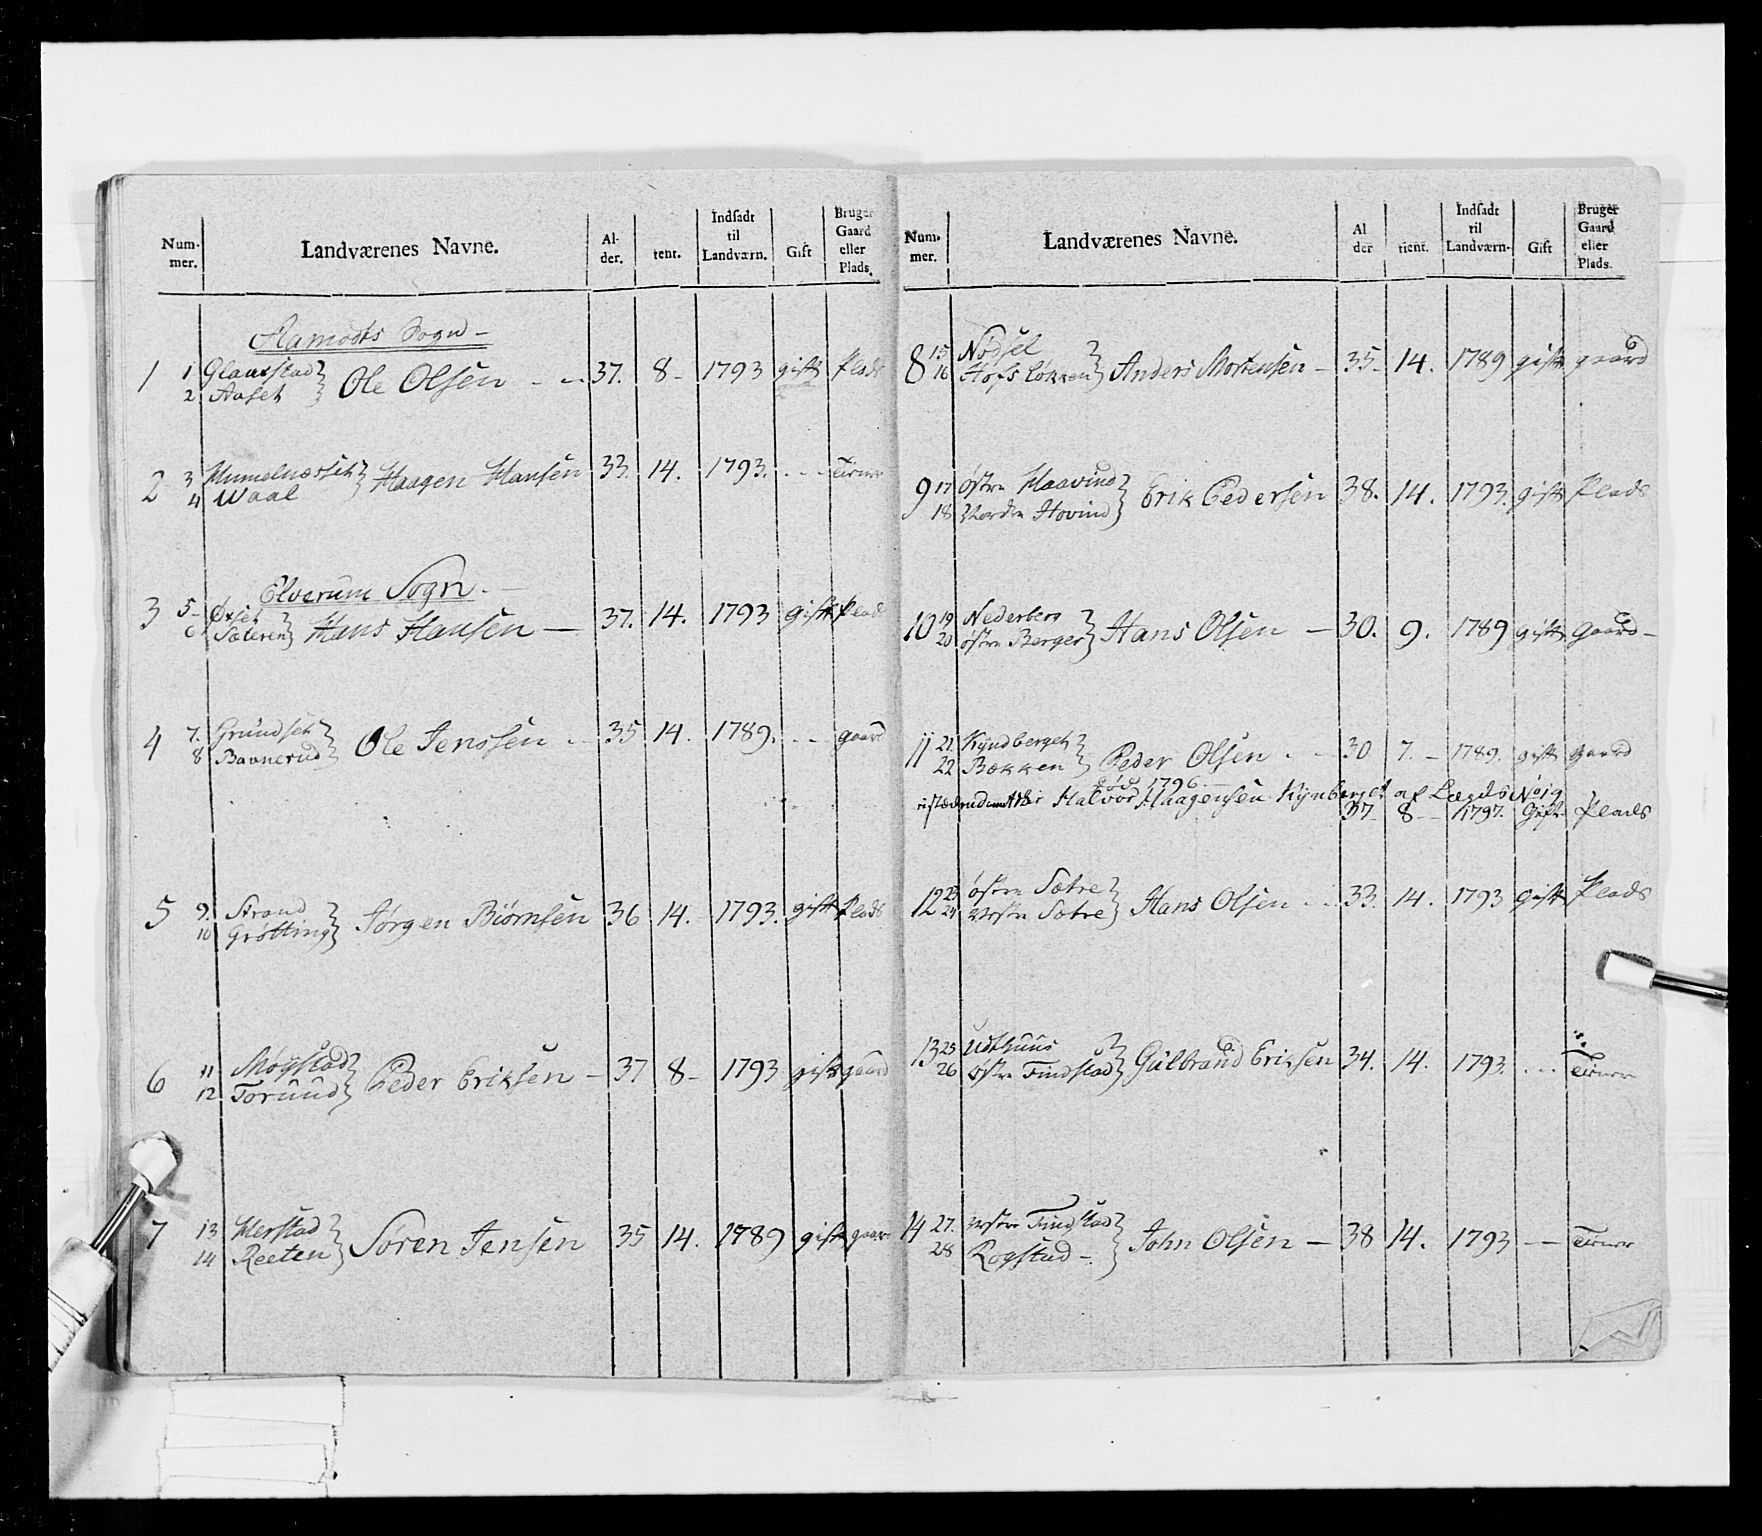 Num-mer. Landværenes Navne. Al-der. tent. Indsadt til Landværn. Gift Bruger Gaard eller Plads.
Aamodts Sogn -
1 1 Glaarstad
2 Aaset } Ole Olsen - - 37. 8- 1793 gift Plads
2 3 Hummelnæsset
4 Waal } Haagen Hansen 33. 14. 1793. - - - Tiener
Elverum Sogn. -
3 5- Øxset
6 Sæteren } Hans Hansen - 37. 14. 1793 gift Plads
4 7. Grundset
8 Baunerud } Ole Jenssen - - 35 14. 1789. - - gaard
5 9. Strand
10 Grøtting } Jørgen Biørnsen 36 14. 1793. gift Plads
6 11 Møystad
12 Torund } Peder Eriksen - 37 8- 1793 gift gaard
7 13 Herstad
14 Reeten } Søren Jensen 35 14. 1789 gift gaar
Num-mer. Landværenes Navne. Al der tient. Indsadt til Landværn- Gift Bruger Gaard eller Plads.
8 15 Nødsel
16 Hofs Løkken } Anders Mortensen - 35- 14. 1789 gift gaard
9 17 østre Haavind
18 Nordre Hovind } Erik Pedersen 38. 14. 1793. gift Plads
10 19 Nederberg
20 østre Berger } Hans Olsen - 30. 9. 1789 gift Gaard-
11 21. Kyndberget
22 Bækken } Peder Olsen - - 30 7. - 1789. gift Gaard
død 1796.
Halvor Haagensen Kynberget af Lægds No 19
37- 8- - 1797. Gift- Plads
12 23 østre Sætre
24 Vestre Sætre } Hans Olsen - - 33. 14. 1793 gift Plads
13 25 Udthuus
26 østre Findstad } Gulbrand Eriksen 34. 14. 1793. - - - Tiener
14 27. vestre Findstad
28 Rogstad - } John Olsen - 38 14. 1793 - - Tiener